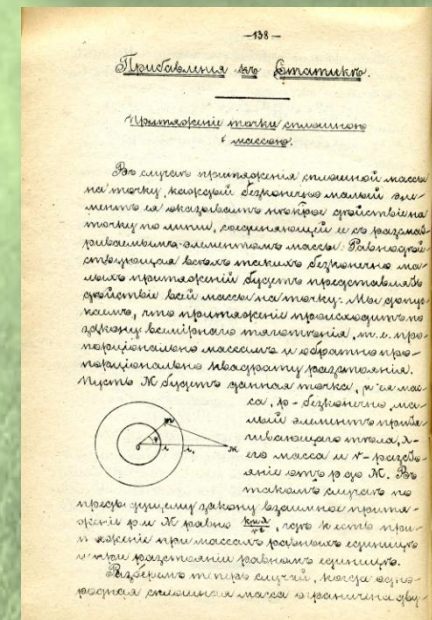 —138—
Прибавленія къ Статикѣ.
Притяженіе точки сплошною
массою.
Въ случаѣ притяженія сплошной массы
на точку, каждый безконечно малый эле-
ментъ ея оказываетъ дѣйствіе на
точку по линіи, соединяющей ее съ разсмат-
риваемымъ элементомъ массы. Равнодѣй-
ствующая всѣхъ такихъ безконечно ма-
лыхъ притяженій будетъ представлять
дѣйствіе всей массы на точку. Мы допус-
каемъ, что притяженіе происходитъ по
закону всемірнаго тяготѣнія, т.е. про-
порціонально массамъ и обратно про-
порціонально квадрату разстоянія.
Пусть М будетъ данная точка, ея мас-
са, р - безконечно ма-
лый элементъ притя-
гивающаго тѣла,
его масса и r - разсто-
яніе отъ р до М. Въ
такомъ случаѣ по
предыдущему закону взаимное притя-
женіе р и М равно, гдѣ k есть при-
тяженіе при массахъ равныхъ единицѣ
и при разстояніи равномъ единицѣ.
Разберемъ теперь случай, когда одно-
родная сплошная масса ограничена дву-